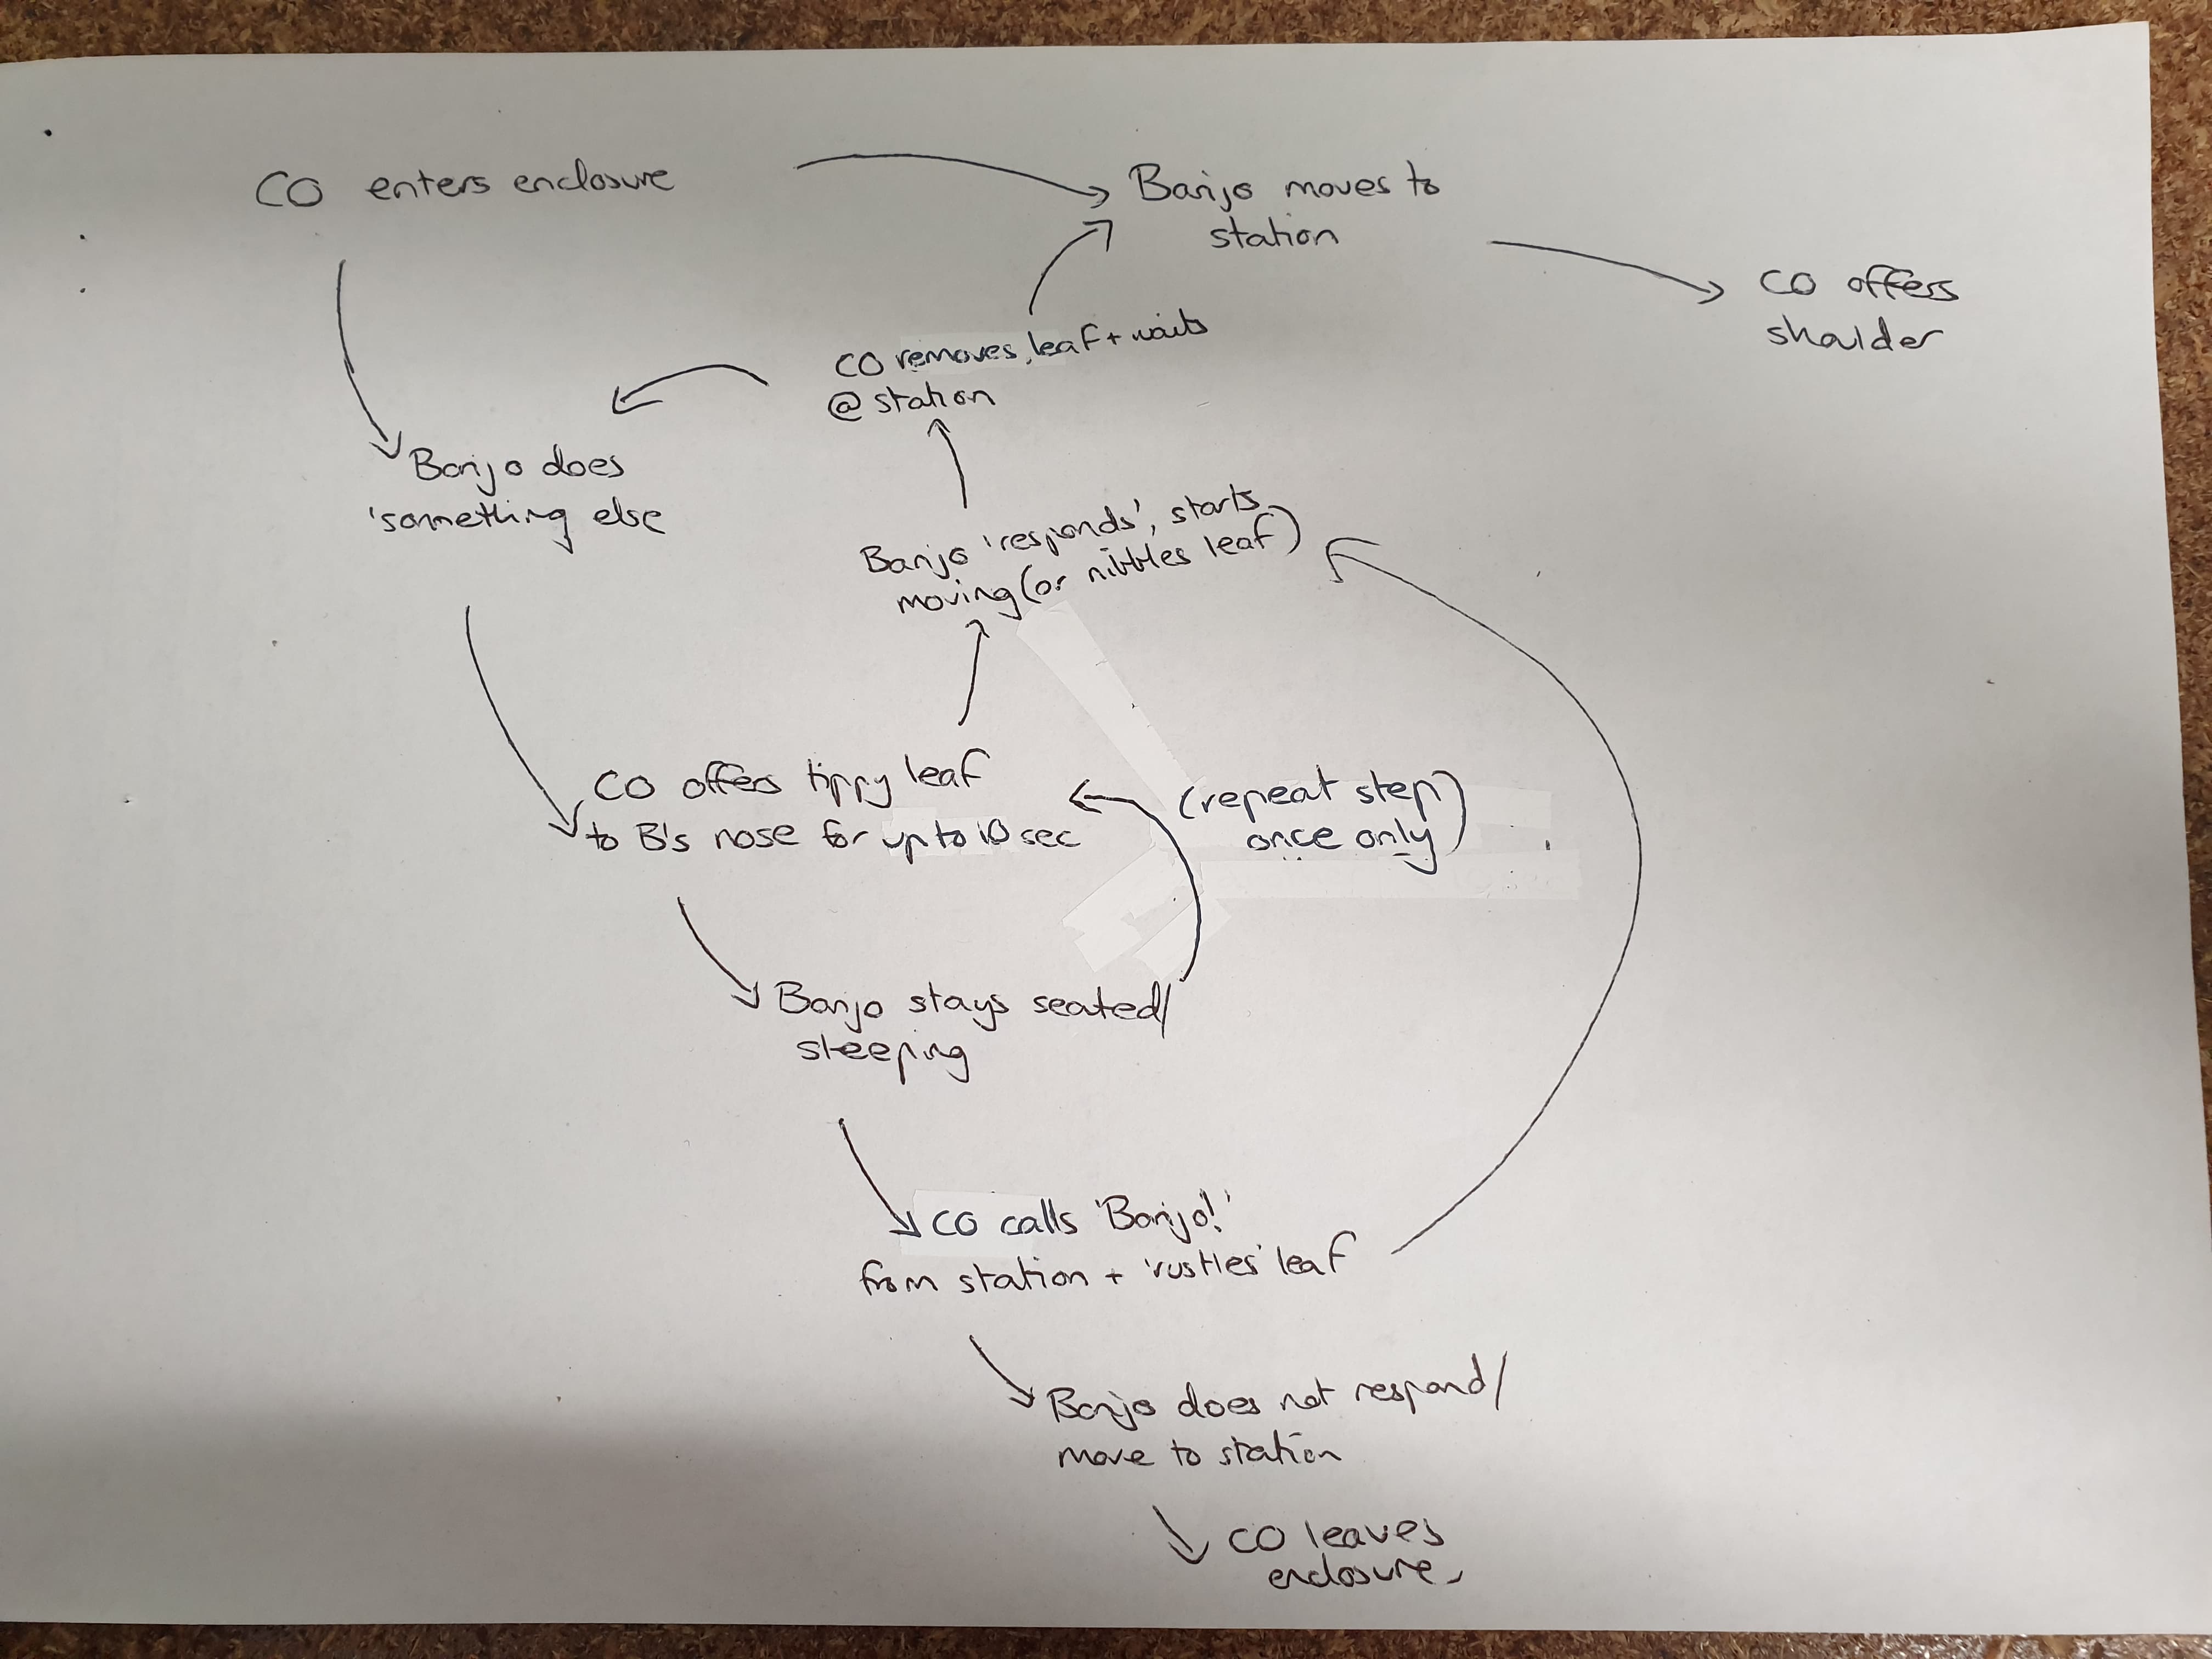 CO enters enclosure
Banjo moves to
station
CO offers
shoulder
CO removes leaf + waits
@ station
Banjo does
'something else
Banjo 'responds', starts
moving (or nibbles leaf)
CO offers tippy leaf
to B's nose for up to 10 sec
(repeat step)
once only
Banjo stays seated/
sleeping
CO calls 'Banjo!'
from station + 'rustles' leaf
Banjo does not respond/
move to station
CO leaves
enclosure